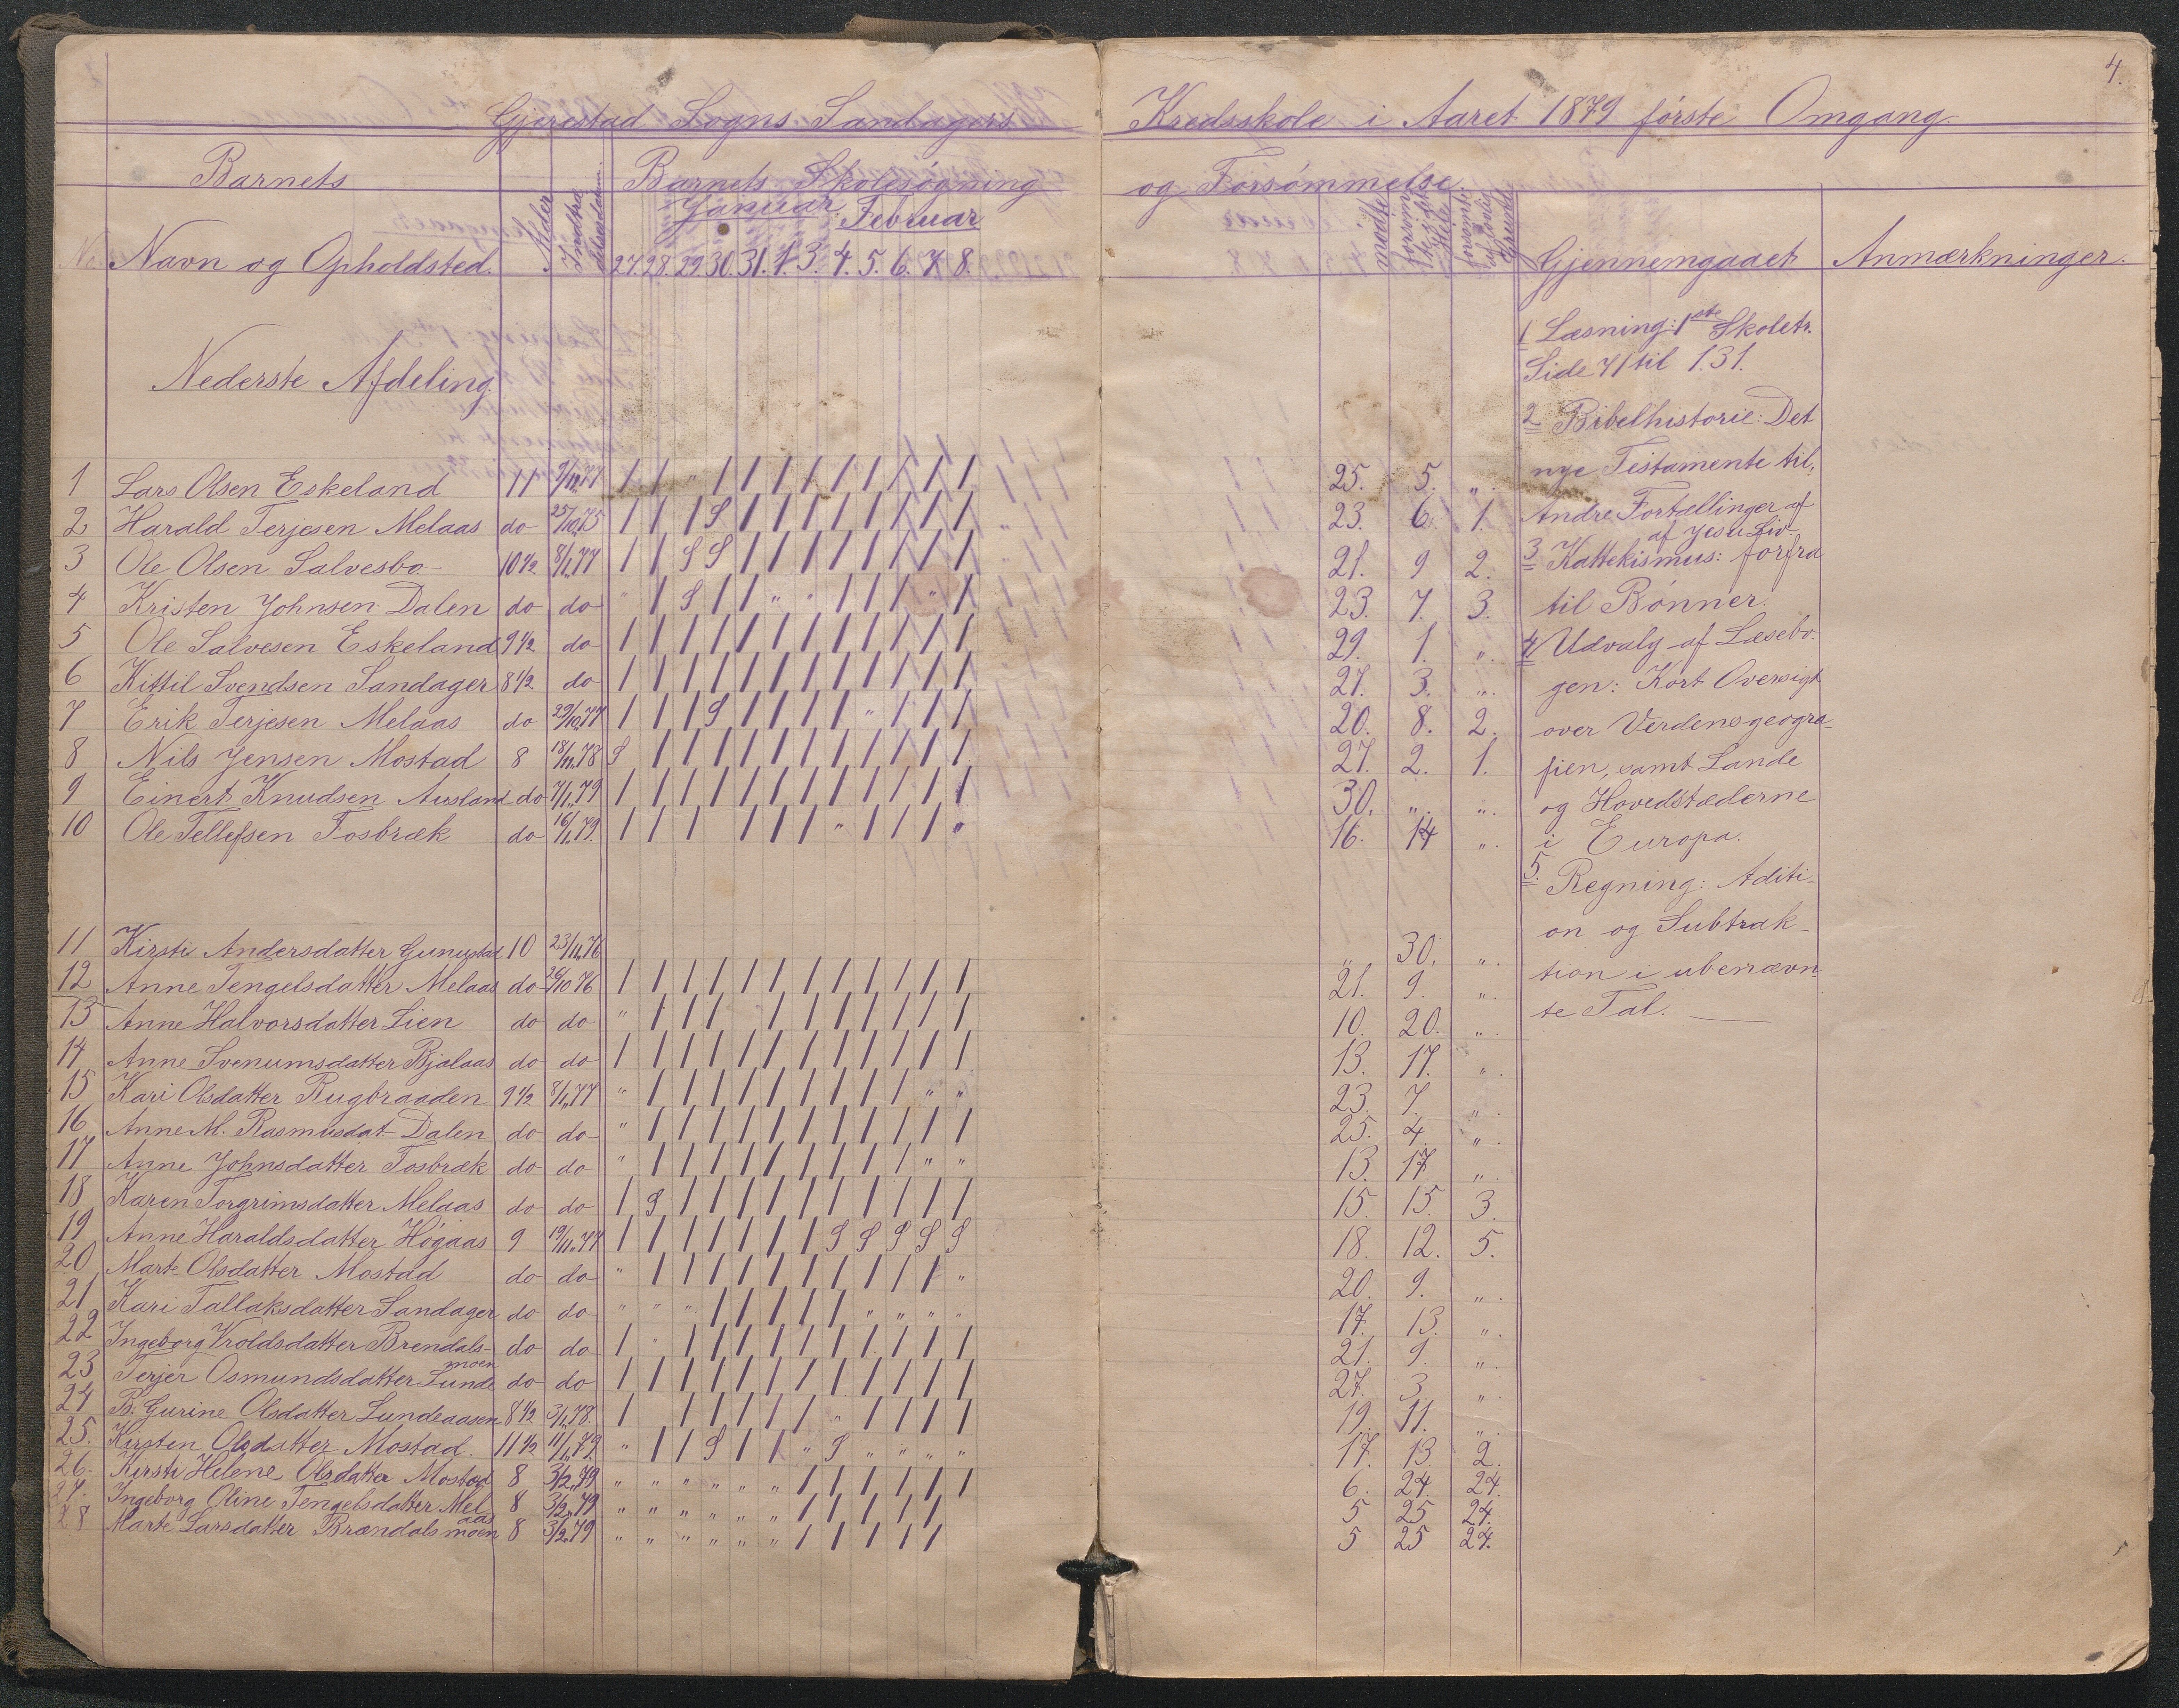 4.
Gjerestad Sogns Sandagers Kredsskole i Aaret 1879 første Omgang.
Barnets Alder Indtrædelsesdatum. Barnets Skolesøgning og Forsømmelse.
Januar. Februar
No Navn og Opholdsted. 27. 28. 29. 30. 31. 1. 3. 4. 5. 6. 7. 8. mødte Gjennemgaaet Anmærkninger.
Nederste Afdeling
1 Lars Olsen Eskeland 11 / / " / / / / / / / / / 25. 5. ".
2 Harald Terjesen Melaas do 25/10.75 / / / S / / / / / / / / 23. 6. 1.
3 Ole Olsen Salvesbo 10 1/2 8/1.77 / / S S / / / / / / / / 21. 9 2.
4 Kristen Johnsen Dalen do do " / S / / " " / / / " / 23. 7. 3.
5 Ole Salvesen Eskeland 9 1/2 do / / / / / / / / / / / / 29. 1. ".
6 Kittil Svendsen Sandager 8 1/2 do / / / / / / / / / / / / 27. 3. ".
7 Erik Terjesen Melaas do 29/10.77 / / / S / / / / " / / / 20. 8. 2.
8 Nils Jensen Mostad 8 18/11.78 S / / / / / / / / / / / 27. 2. 1.
9 Einert Knudsen Ausland do 7/1.79 / / / / / / / / / / / / 30. ". ".
10 Ole Tellefsen Fosbræk do 16/1.79. / / / / / / " / / / " 16. 14 ".
11 Kirsti Andersdatter 10 23/11.76 " 30. ".
12 Anne Tengelsdatter Melaas do 26/10 76 / / / / / / / / / / / / 21. 9. ".
13 Anne Halvorsdatter Lien do do " / / / / / / / / / / 10. 20. ".
14 Anne Svenumsdatter Bjalaas do do / / / / / / / / / / / / 13. 17. ".
15 Kari Olsdatter Rugbraaden 9 1/2 8/1.77 " / / / / / / / / / " " 23. 7. ".
16 Anne M. Rasmusdat. Dalen do do " / / / / / / / / / / / 25. 4. ".
17 Anne Johnsdatter Fosbræk do do " / / / / / / / / / " " 13. 17. ".
18 Karen Torgrimsdatter Melaas do do / S / / / / / / / / / / 15. 15. 3.
19 Anne Haraldsdatter Høgaas 9 19/11.77 / / / / / / / S S S S S 18. 12. 5.
20 Marte Olsdatter Mostad do do " / / / / / / / / / / " 20. 9. ".
21 Kari Tallaksdatter Sandager do do " " " / / / / / " " " " 17. 13. ".
22 Ingeborg Vroldsdatter Brendals-moen do do / " / / / / / / / / / / 21. 9. ".
23 Terjer Osmundsdatter Lunde do do / / / / / / / / / / / / 27. 3. ".
24 B. Gurine Olsdatter Lundeaasen 8 1/2 3/1.78. / / / / / / " / / / / 19. 11. ".
25. Kirsten Olsdatter Mostad. 11 1/2 11/1.79. " / / S / / " S " " " " 17. 13. 2.
26. Kirsti Helene Olsdatter Mostad 8 3/2.79 " " " " " " / / / / / / 6. 24. 24.
27. Ingeborg Oline Tengelsdatter Melaas 8 3/2.79 " " " " " " / / / / / 5 25 24.
28 Marte Larsdatter Brændalsmoen 8 3/2.79 " " " " " " / / / / / 5 25 24.
1 Læsning: 1ste Skoletr.
Side 71 til 131.
2 Bibelhistorie: Det
nye Testamente til,
Andre Fortællinger af
af Jesu Liv.
3 Kattekismus: forfra
til Bønner.
4 Udvalg af Læsebo-
gen: Kort Oversigt
over Verdensgeogra-
fien, samt Lande
og Hovedstæderne
i Europa.
5. Regning: Aditi-
on og Subtrak-
tion i ubenævn
te Tal.